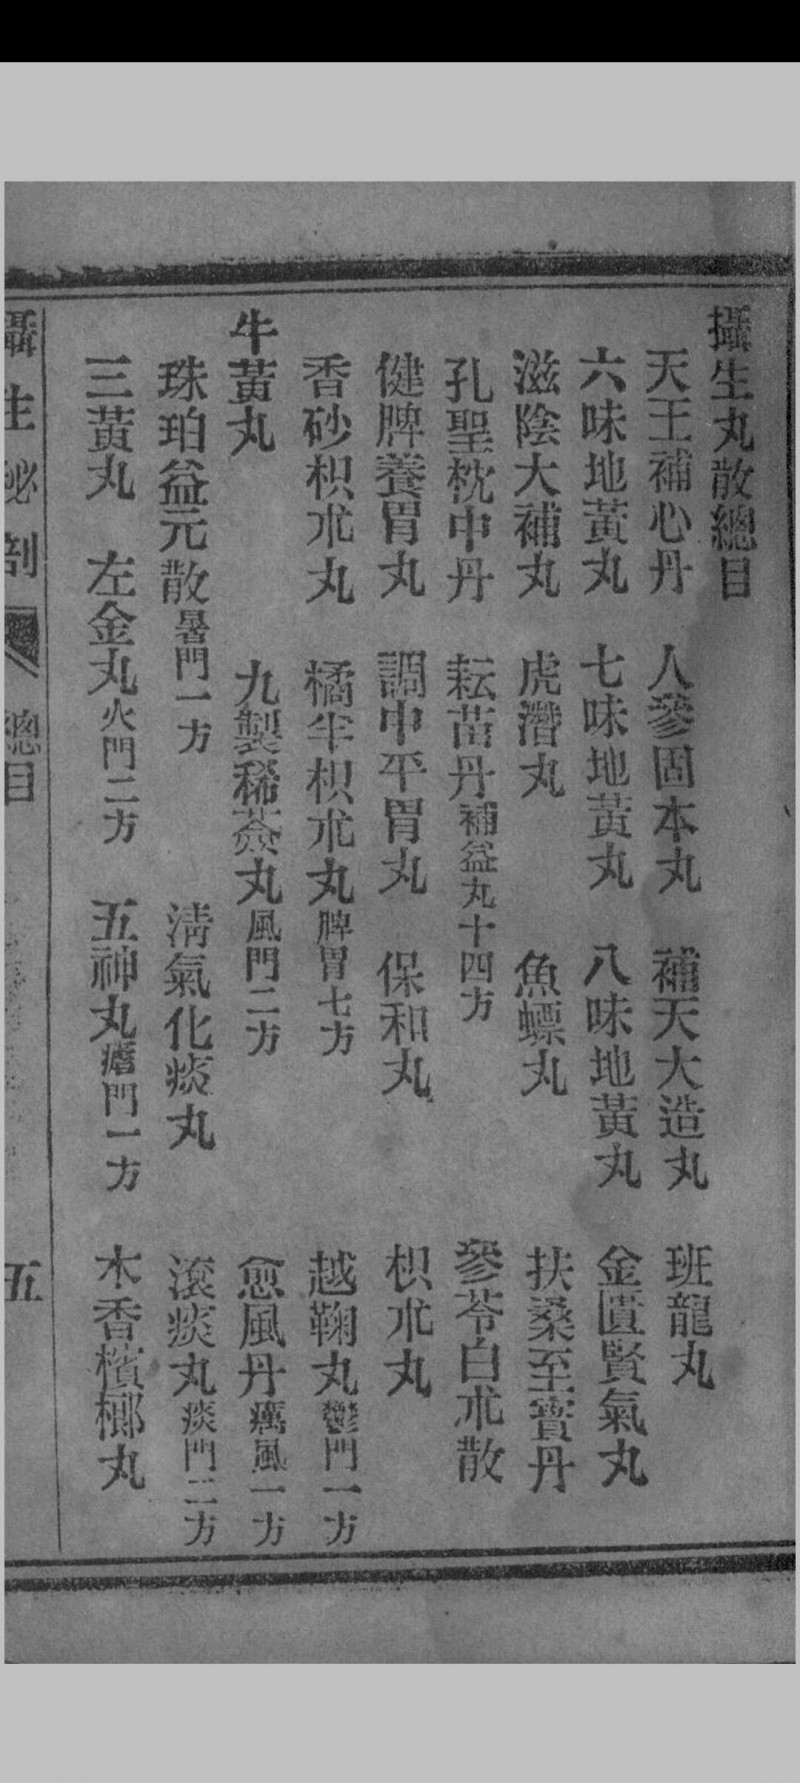 攝生丸散總目
天王補心丹　人參固本丸　補天大造丸　班龍丸
六味地黃丸　七味地黃丸　八味地黃丸　金匱腎氣丸
滋陰大補丸　虎潛丸　魚螵丸　扶桑至寶丹
孔聖枕中丹　耘苗丹補益丸十四方　參苓白朮散
健脾養胃丸　調中平胃丸　保和丸　枳朮丸
香砂枳朮丸　橘半枳朮丸脾胃七方　越鞠丸鬱門一方
牛黃丸　九製稀薟丸風門二方　愈風丹癘風一方
珠珀益元散暑門一方　淸氣化痰丸　滾痰丸痰門二方
三黃丸　左金丸火門二方　五神丸瘧門一方　木香檳榔丸
攝生秘剖　總目　五